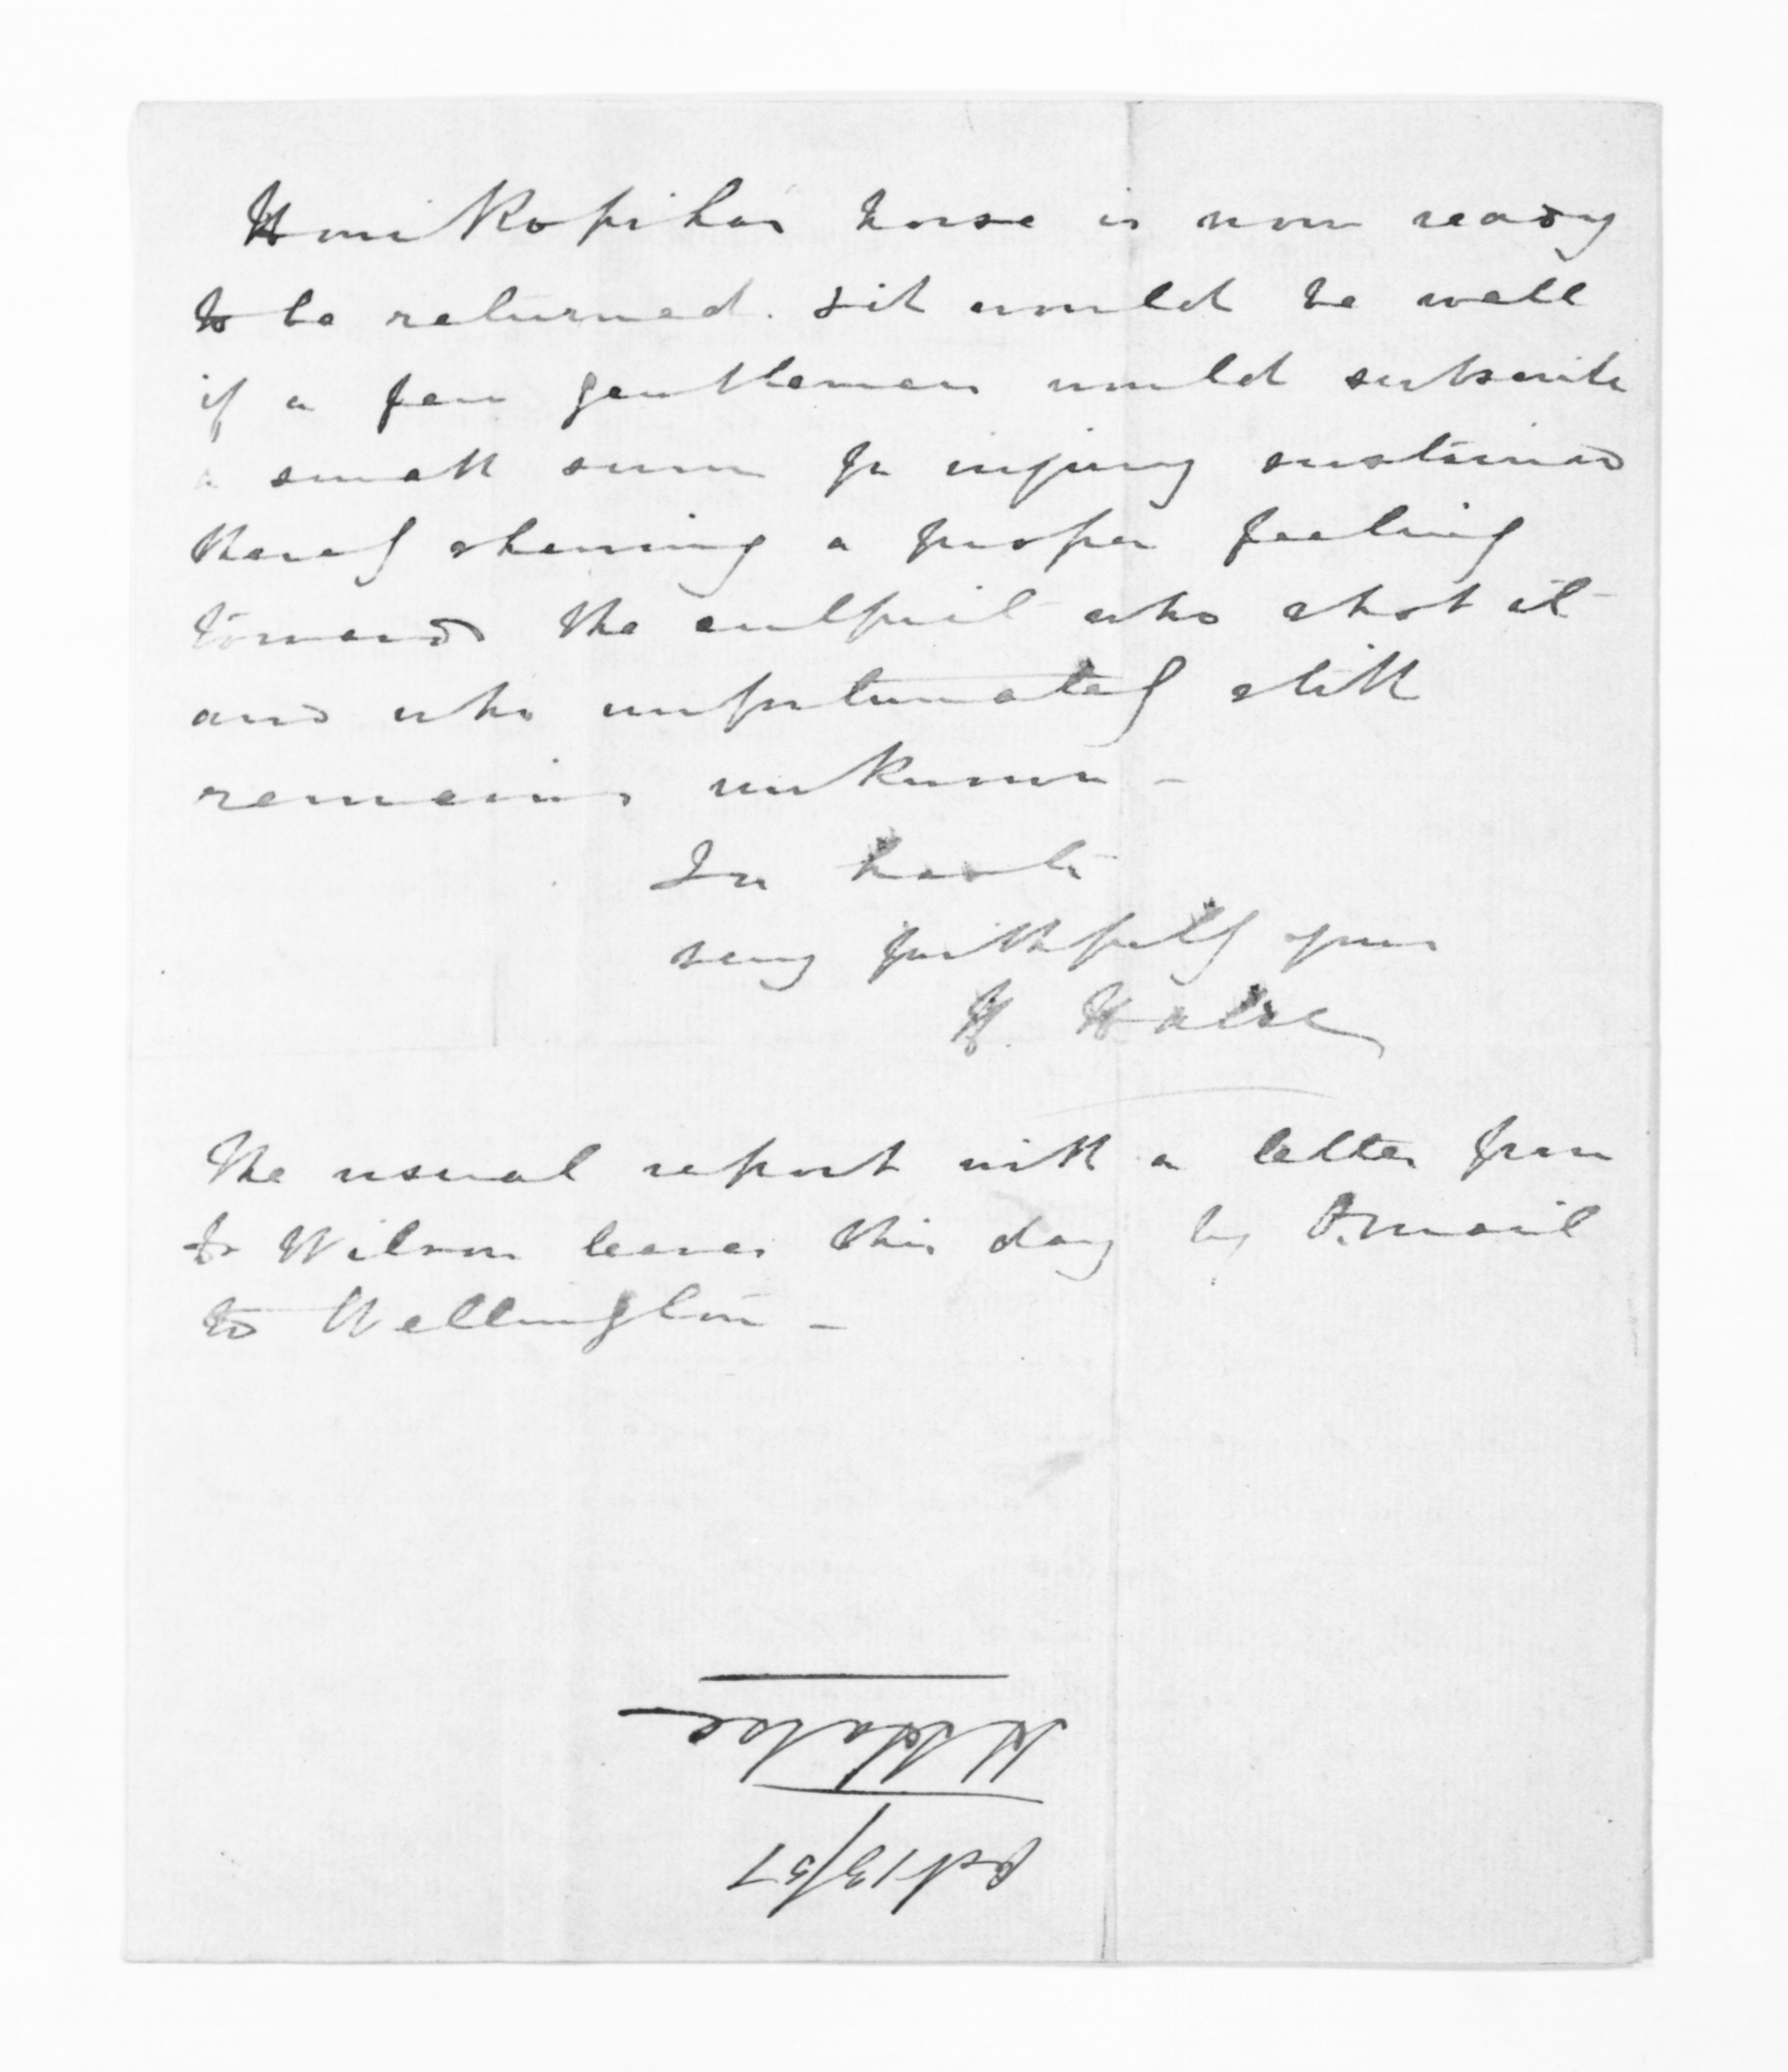 Honi Ropihas horse is now ready
to be returned. & it would be well
if a few gentlemen would subscribe
a small sum for injury sustained
thereof shewing a proper feeling
towards the culprit who shot it
and who unfortunately still
remains unknown –
In haste
very faithfully yours
H. Halse
The usual report with a letter from
Dr Wilson leaves this day by O. mail
to Wellington –
H Halse
Oct 13/57